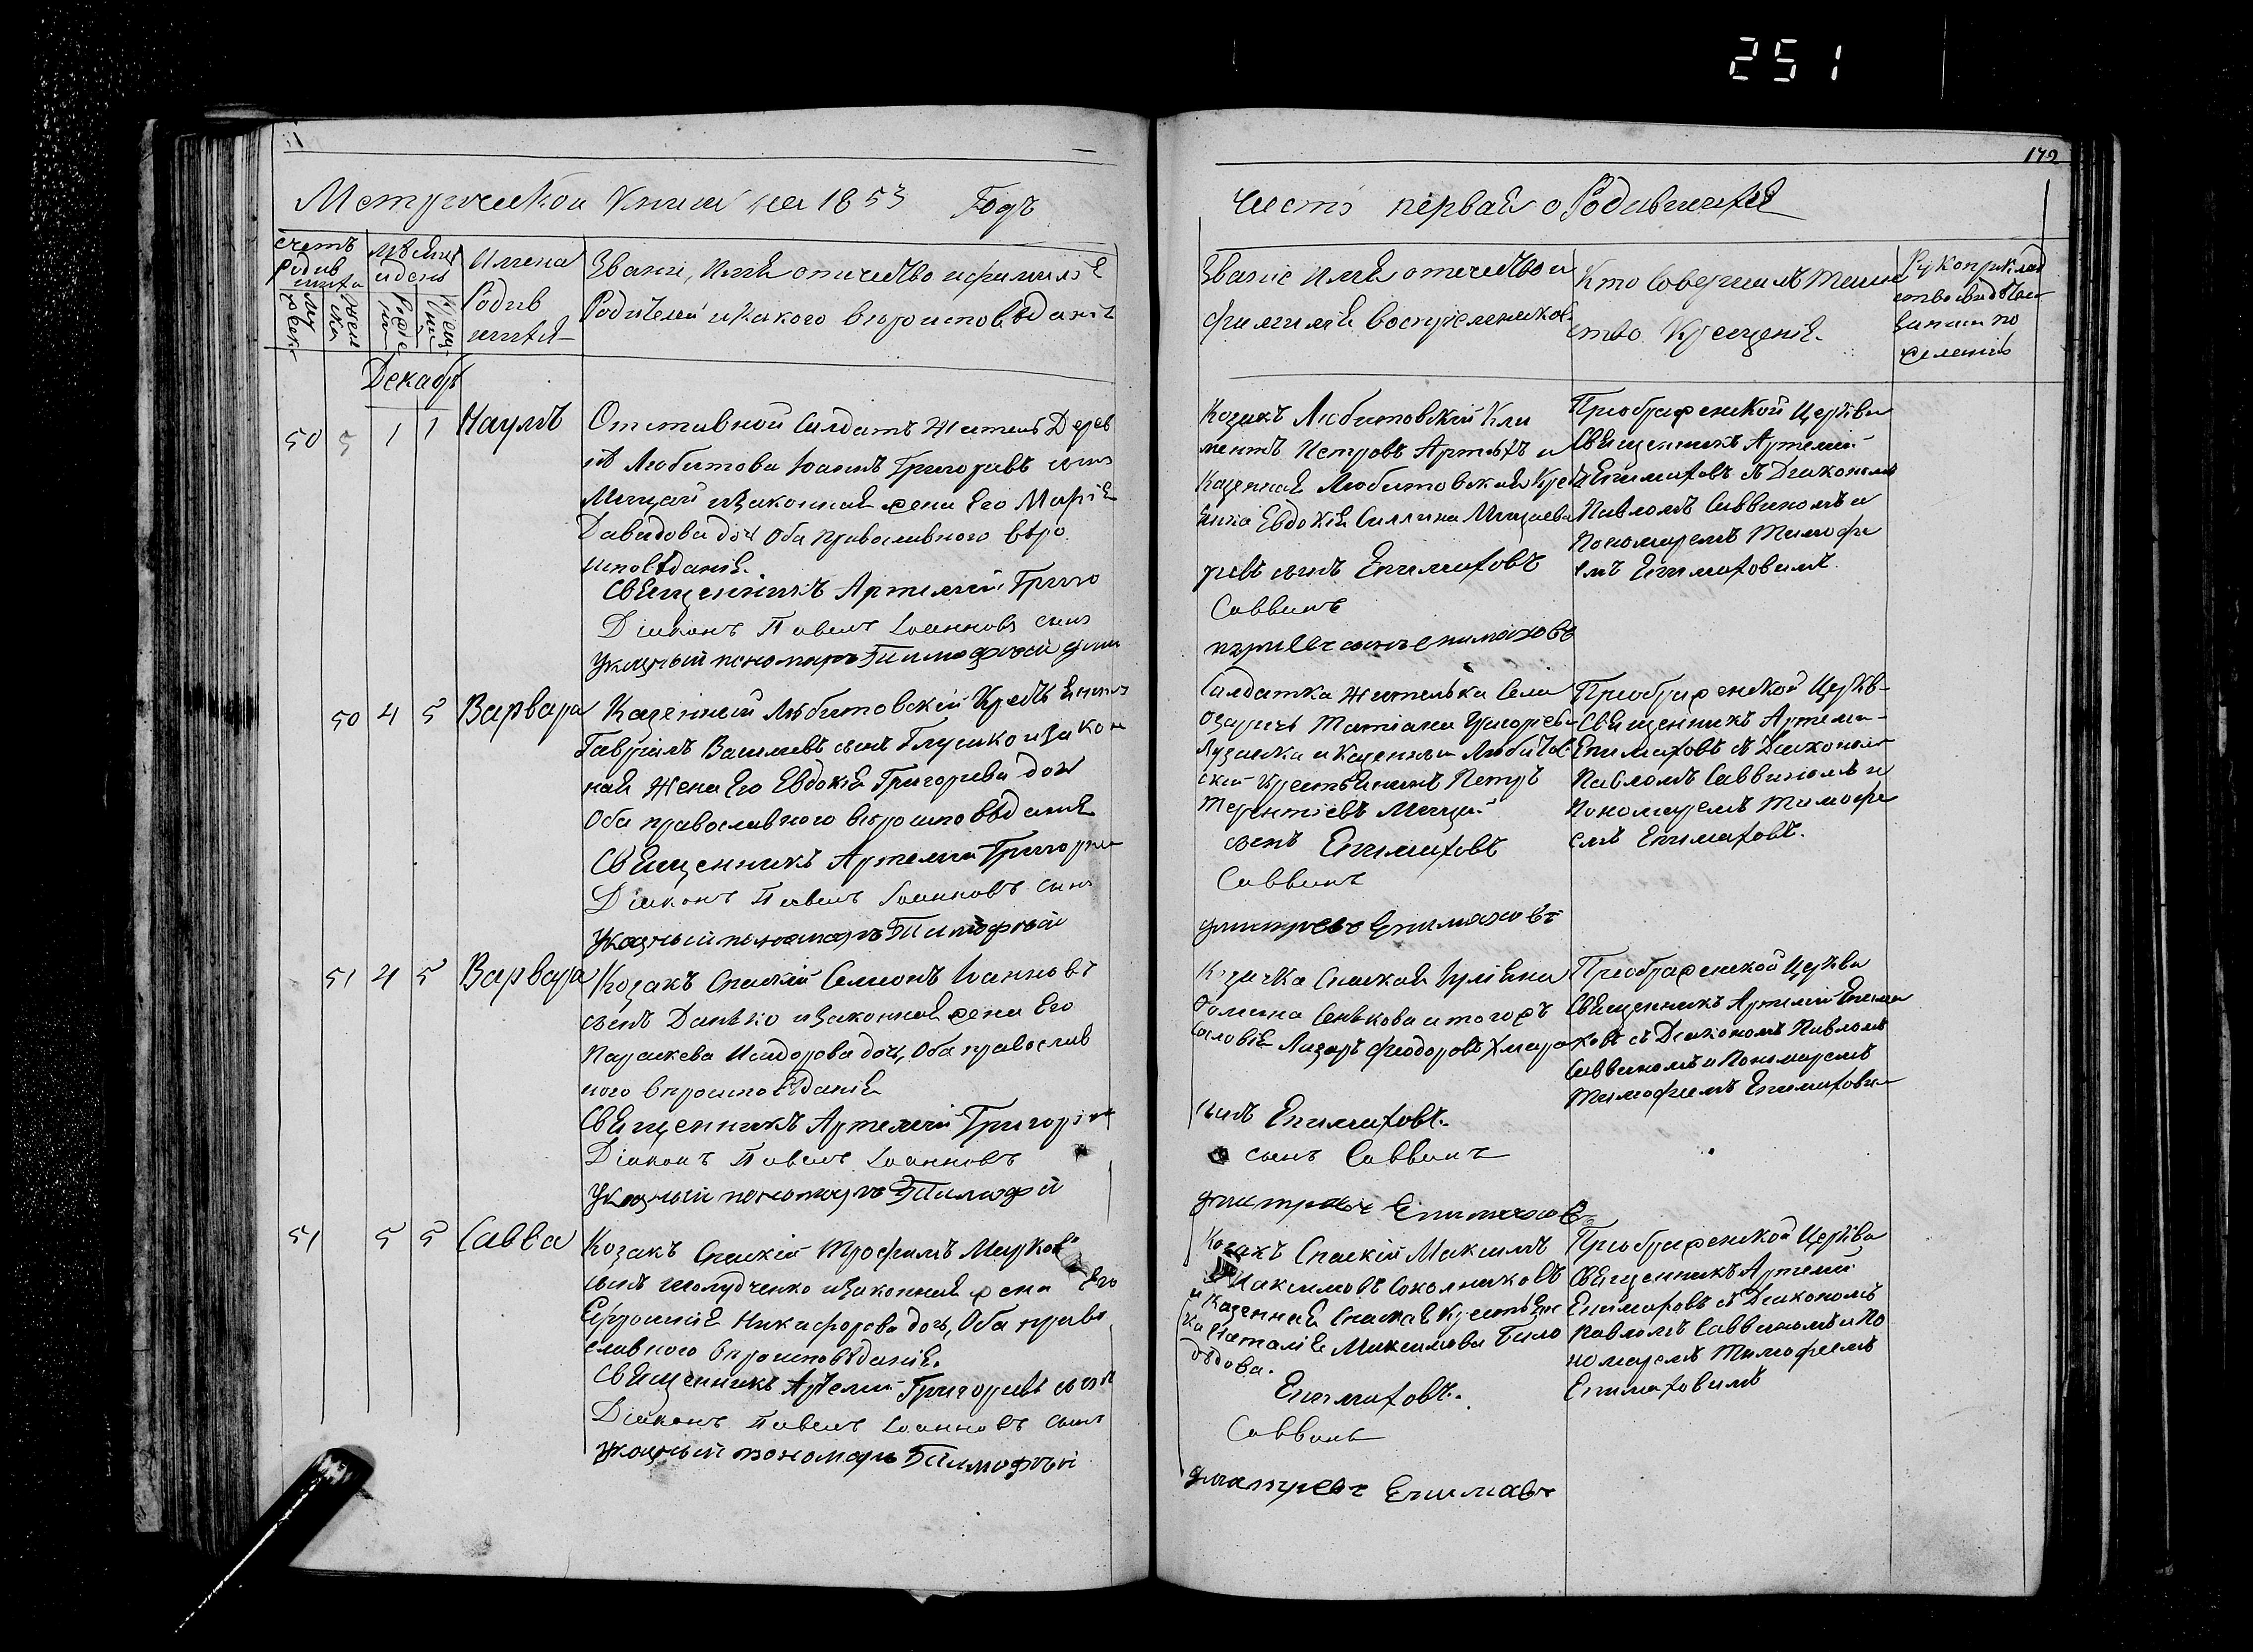 251
172
Метрической Книги на 1853 Годъ
Часть первая о Родившихся
счетъ родившихся
Мужеска
Женска
Мѣсяцъ и день
Рожденія
Крещенія
Имена Родившихся
Званіе, Имя отичество и фамилія
Родителей и какого вѣроисповѣданія
Званіе Имя отечество и
фамилія Воспріемниковъ
Кто Совершалъ Таин
ство Крещенія.
Рукоприклад
ство свидѣтелей
записи по
желанію
Декабрь
50 1 1 Наумъ
Отставной Солдатъ Житель Дерев
нѣ Любитова Іоаннъ Григоріевъ сынъ
Мацай и Законная жена Его Марія
Давидова доч Оба Православного вѣро
исповѣданія.
Священникъ Артемій Григо
Діаконъ Павелъ Іоанновъ сынъ
Указный пономарь Тимофѣй дми
Козакъ Любитовскій Кли
ментъ Петровъ и
Казенная Любитовская Крес
янка Евдокія Мацаева
ріевъ сынъ Епимаховъ
Саввинъ
тріевъ сынъ епимаховъ
Преображенской Церкви
Священникъ Артемій
Епимаховъ съ Діакономъ
Павломъ Саввиномъ и
Пономаремъ Тимофе
емъ Епимаховимъ.
50 4 5 Варвара
Казенный Любитовскій Крестьянинъ
Гавріилъ Василіевъ сынъ Глушко и Закон
ная Жена Его Евдокія Григорьева доч
Оба православного вѣроисповѣданія
Священникъ Артемій Григорие
Діаконъ Павелъ Іоанновъ сынъ
Указный пономарь Тимофѣй
Салдатка Жителька Села
Озаричъ Татіана Григорьева
и Казенный Любитов
скій Крестьянинъ Петръ
Терентіевъ Мацай
сынъ Епимаховъ
Саввинъ
дмитріевъ Епимаховъ
Преображенской Церкв
Священникъ Артеми
Епимаховъ съ Діакономъ
Павломъ Саввиномъ и
Пономаремъ Тимофе
емъ Епимаховъ.
51 4 5 Варвара
Козакъ Спаскій Семіонъ Іоанновъ
сынъ Данько и Законная жена Его
Параскева Исидорова доч, Оба православ
ного вѣроисповѣданія
Священникъ Артемій Григоріев
Діаконъ Павелъ Іоанновъ
Указный пономарь Тимофѣй
Козачка Спаская Іуліяна
Фомина Сенькова и того жъ
Сословія Лазарь Феодоровъ Хмара
сынъ Епимаховъ.
сынъ Саввинъ
дмитріевъ Епимаховъ
Преображенской Церкви
Священникъ Артемій Епима
ховъ съ Діакономъ Павломъ
Саввиномъ и Пономаремъ
Тимофеемъ Епимахови
51 5 5 Савва
Козакъ Спаскій Трофимъ Марков
сынъ Шолудченко и Законная жена Его
Ефросинія Никифорова доч, Оба право
славного вѣроисповѣданія.
Священникъ Артемій Григоріевъ сынъ
Діаконъ Павелъ Іоанновъ сынъ
Указный пономарь Тимофѣй
Козакъ Спаскій Максимъ
Максимовъ Соколниковъ
и Казенная Спаская Крестьян
ка Наталія Максимова Било
дѣдова.
Епимаховъ.
Саввинъ
дмитріевъ Епимахв
Преображенской Церкви
Священникъ Артемій
Епимаховъ съ Діакономъ
Павломъ Саввиномъ и По
номаремъ Тимофеемъ
Епимаховимъ